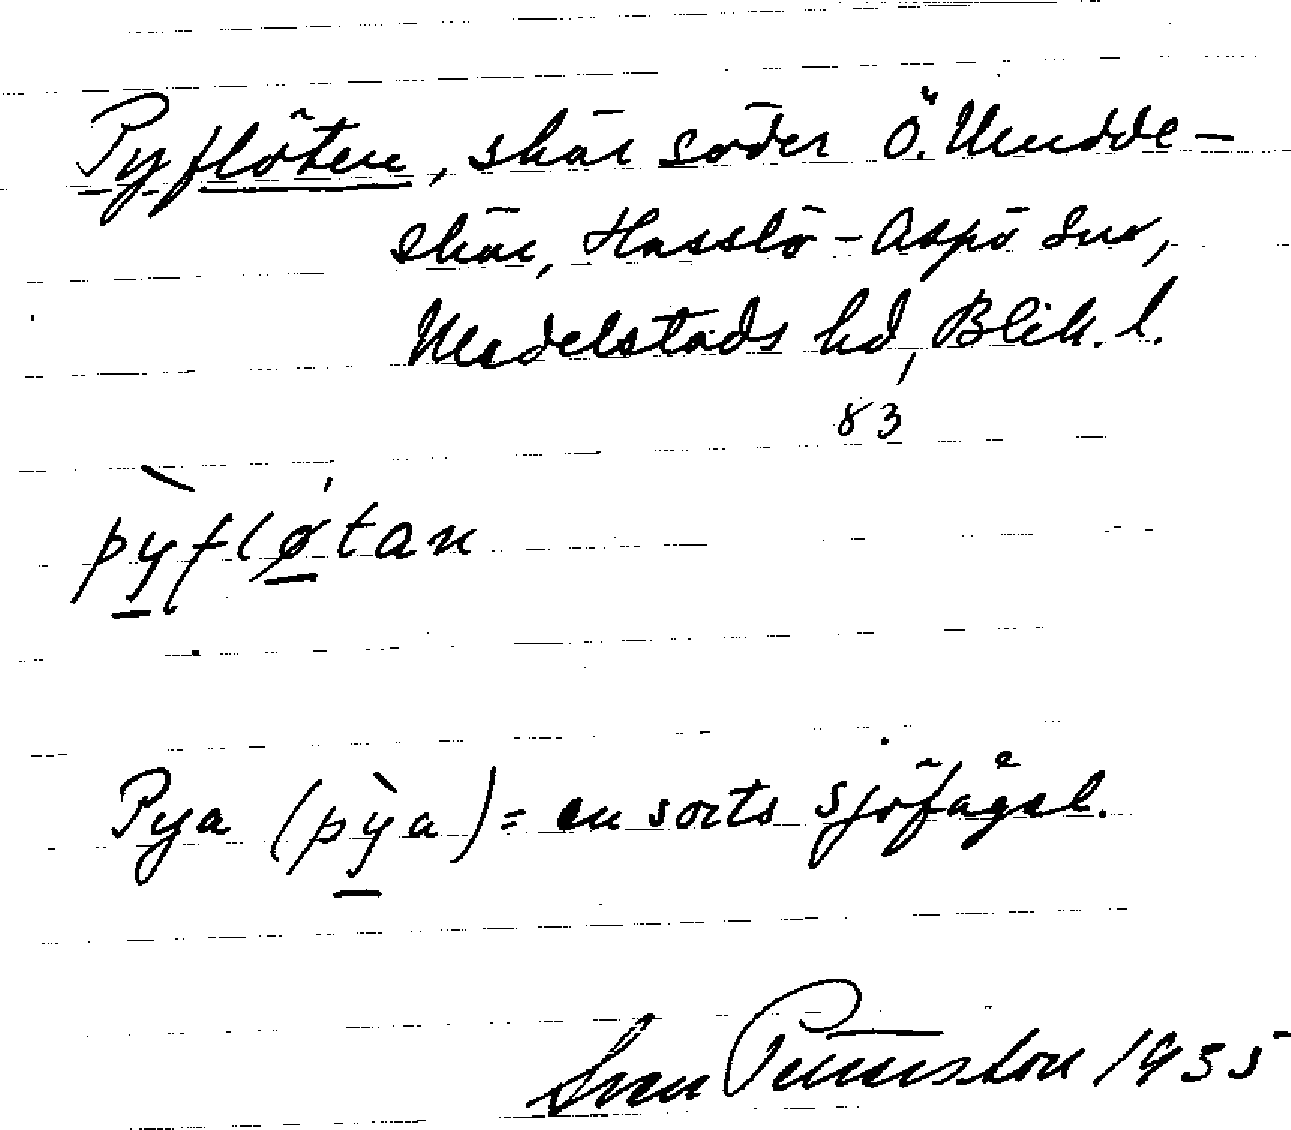 Pyflöten, skär söder Ö. Mudde-
skär, Hasslö-Aspö snr,
Medelstads hd, Blek. l.
83
pỳfløtan
Pya (pỳa) = en sorts sjöfågel.
Sven Petersson 1955